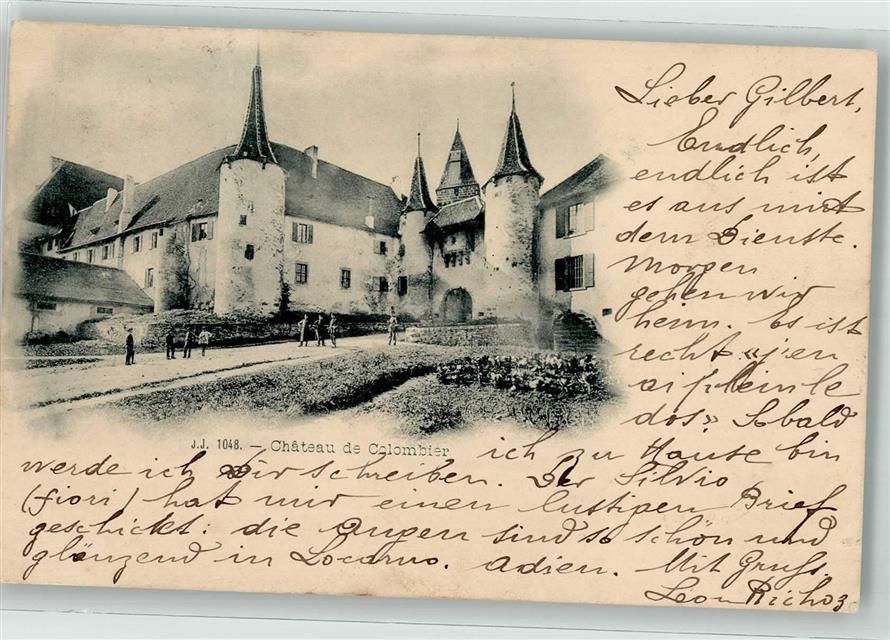 Lieber Gilbert,
Endlich,
endlich ist
es aus mit
dem Dienste.
Morgen
gehen wir
heim. Es ist
recht «j'en
ai plein le
dos» Sobald
J.J. 1048. — Château de Colombier
ich zu Hause bin
werde ich Dir schreiben. Der Silvio
(fiori) hat mir einen lustigen Brief
geschickt: die Augen sind so schön und
glänzend in Locarno. Adien. Mit Gruss.
Léon Richoz